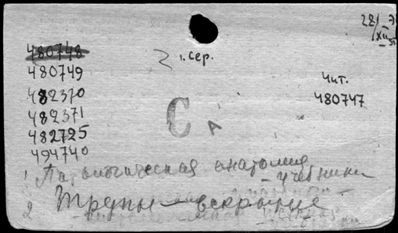 28/
XII
480748
1 сер.
480749
Чит.
482370
480747
482371
С
А
482725
494740
1 Патологическая анатомия
- учебники
2 Трупы - вскрытие